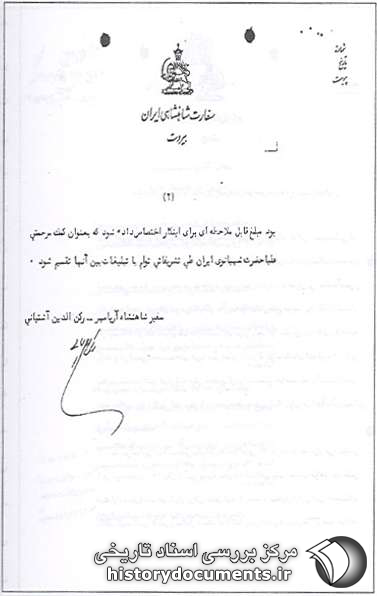 شماره
تاریخ
پیوست
سفارت شاهنشاهی ایران
بیروت
(۲)
بود مبلغ قابل ملاحظه ای برای اینکار اختصاص داده شود که بعنوان کمک مرحمتی
علیاحضرت شهبانوی ایران طی تشریفاتی توام با تبلیغات بین آنها تقسیم شود .
سفیر شاهنشاه آریامهر ــ رکن الدین آشتیانی
مرکز بررسی اسناد تاریخی
historydocuments.ir